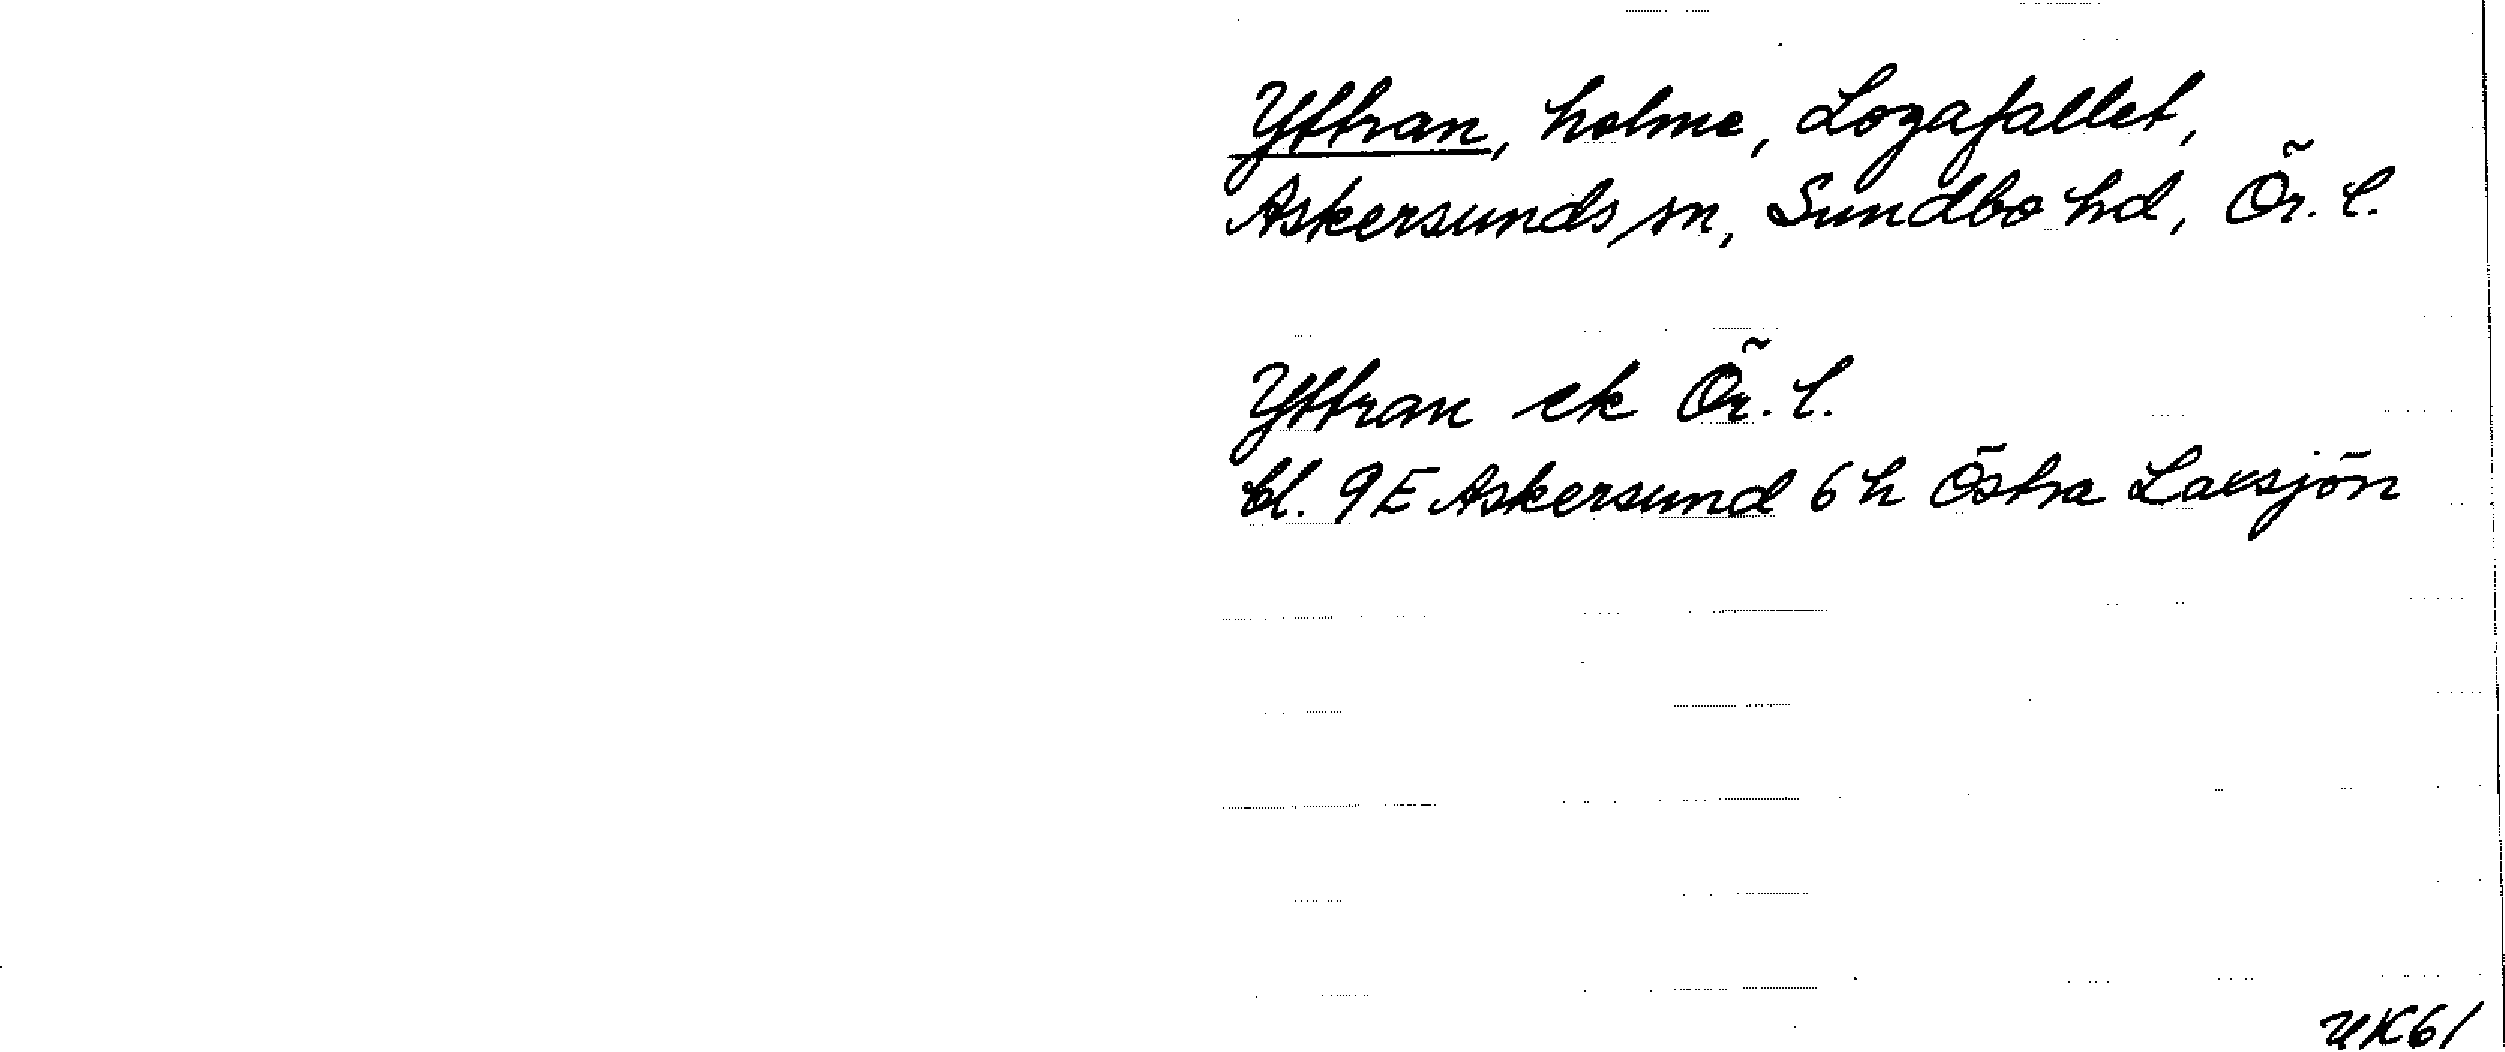 Yttran, holme, Logafallet,
Askersunds sn, Sundbo hd, Ör. l.
Yttran ek Ör. l.
bl. 9E Askersund 6h Östra Laxsjön
UK61